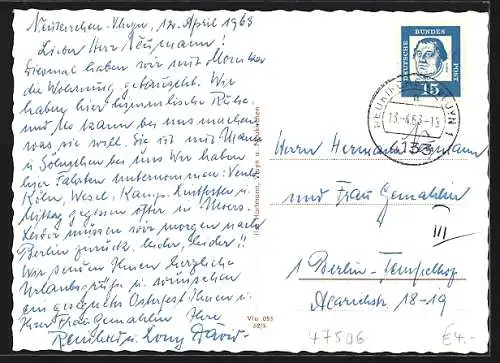 Neukirchen-Vluyn, 12. April 1963
Lieber Herr Neumann!
Diesmal haben wir mit Monika
die Wohnung getauscht. Wir
haben hier himmlische Ruhe
und sie kann bei uns machen
was sie will. Sie ist mit Mann
u. Söhnchen bei uns. Wir haben
Fahrten unternommen: Venlo
Köln, Wesel, Kamp-Lintfort u.
gegessen öfter in Moers.
Leider müssen wir morgen nach
Berlin zurück. leider, leider!!
Wir senden Ihnen herzliche
Urlaubsgrüße u. wünschen
ein gesegnetes Osterfest Ihnen u.
Ihrer Frau Gemahlin Ihre
Reinhold u. Lony David
Hartmann, Vluyn u. Neukirchen
Vlu 055
DEUTSCHE BUNDES POST
15
NEUKIRCHEN-VLUYN 1
a
13.-4.63-13
4132
Herrn Hermann Neumann
und Frau Gemahlin
III
1 Berlin-Tempelhof
Alarichstr. 18-19
47506
E4.-